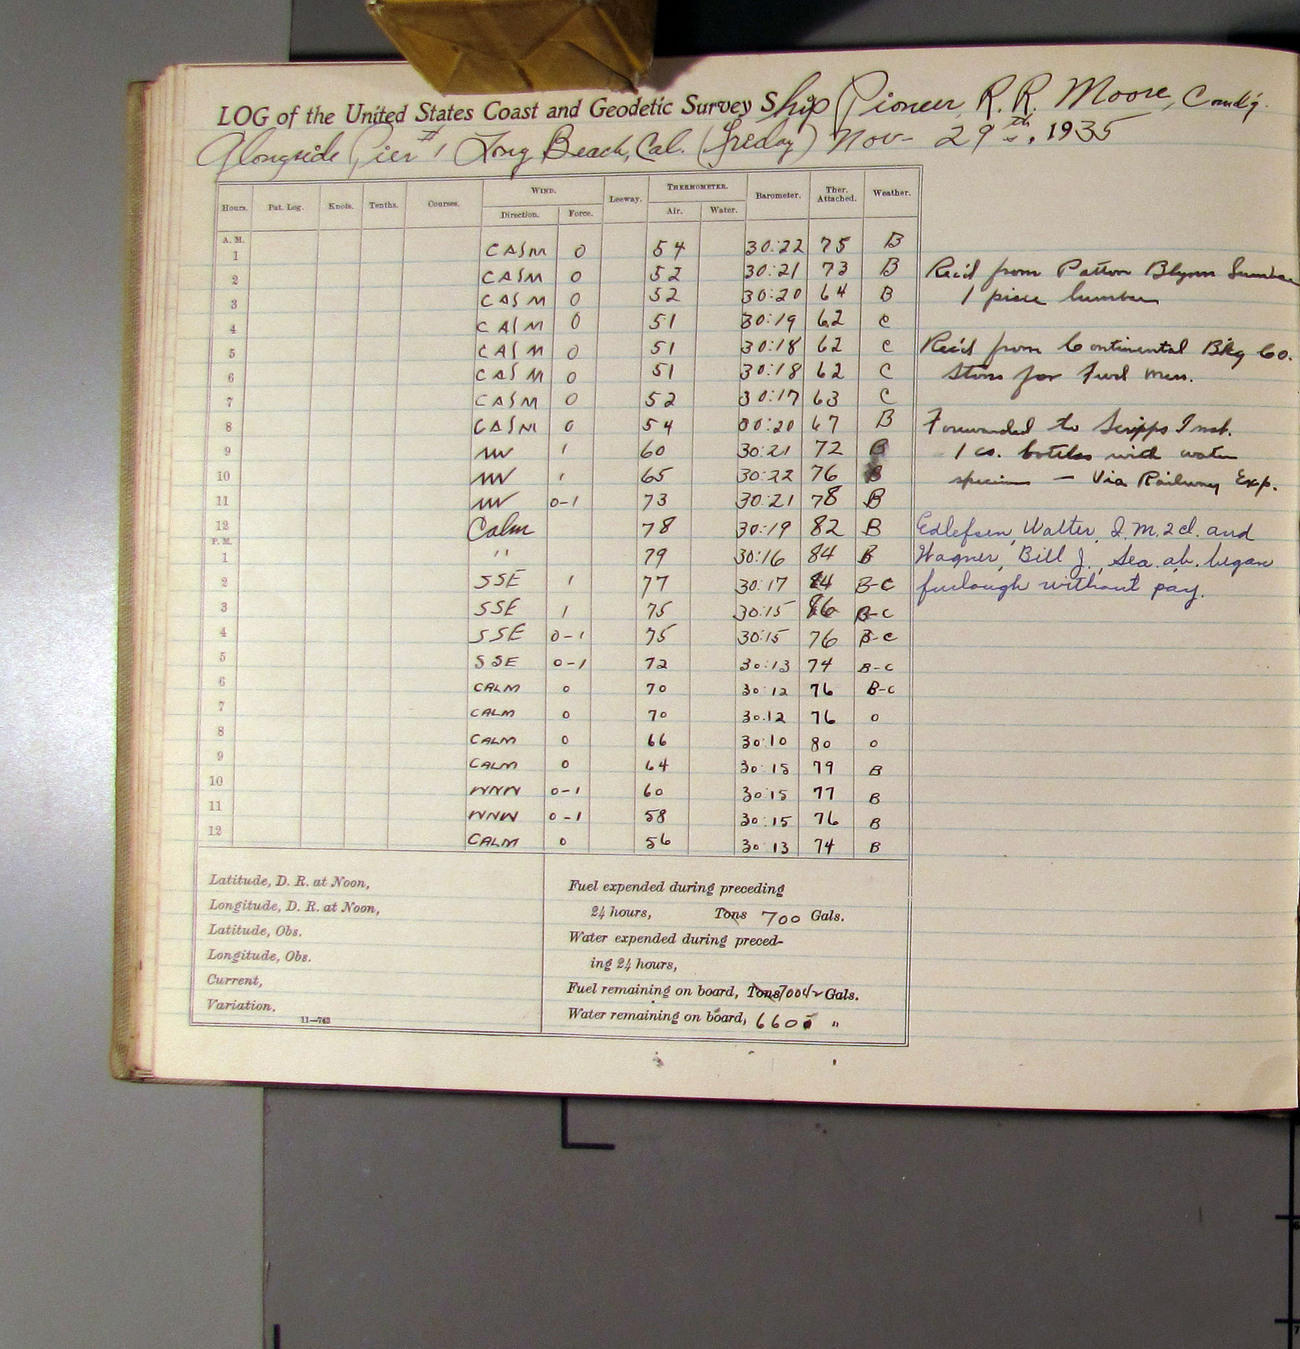 LOG of the United States Coast and Geodetic Survey Ship Pioneer, R. R. Moore, Comd'g.
Alongside Pier #1 Long Beach, Cal. (Friday) Nov- 29th, 1935
Hours. Pat. Log. Knots. Tenths. Courses. WIND. Direction. Force. Leeway. THERMOMETER. Air. Water. Barometer. Ther. Attached. Weather.
A. M.
1 CALM 0 54 30:22 75 B
2 CALM 0 52 30:21 73 B
3 CALM 0 52 30:20 64 B
4 CALM 0 51 30:19 62 C
5 CALM 0 51 30:18 62 C
6 CALM 0 51 30:18 62 C
7 CALM 0 52 30:17 63 C
8 CALM 0 54 30:20 67 B
9 NW 1 60 30:21 72 B
10 NW 1 65 30:22 76 B
11 NW 0-1 73 30:21 78 B
12 Calm 78 30:19 82 B
P. M.
1 " 79 30:16 84 B
2 SSE 1 77 30:17 84 B-C
3 SSE 1 75 30:15 86 B-C
4 SSE 0-1 75 30:15 76 B-C
5 SSE 0-1 72 30:13 74 B-C
6 CALM 0 70 30:12 76 B-C
7 CALM 0 70 30.12 76 0
8 CALM 0 66 30:10 80 0
9 CALM 0 64 30:15 79 B
10 WNW 0-1 60 30:15 77 B
11 WNW 0-1 58 30:15 76 B
12 CALM 0 56 30:13 74 B
Rec'd from Patton Blynn Lumber
1 piece lumber
Rec'd from Continental Bkg Co.
Stores for Fwd Mess.
Forwarded to Scripps Inst.
1 cs. bottles with water
specimens - Via Railway Exp.
Edlefsen, Walter, Q.M. 2cl. and
Wagner, Bill J., Sea. ab. began
furlough without pay.
Latitude, D. R. at Noon,
Longitude, D. R. at Noon,
Latitude, Obs.
Longitude, Obs.
Current,
Variation.
11—763
Fuel expended during preceding
24 hours, Tons 700 Gals.
Water expended during preced-
ing 24 hours,
Fuel remaining on board, Tons Gals.
Water remaining on board, "